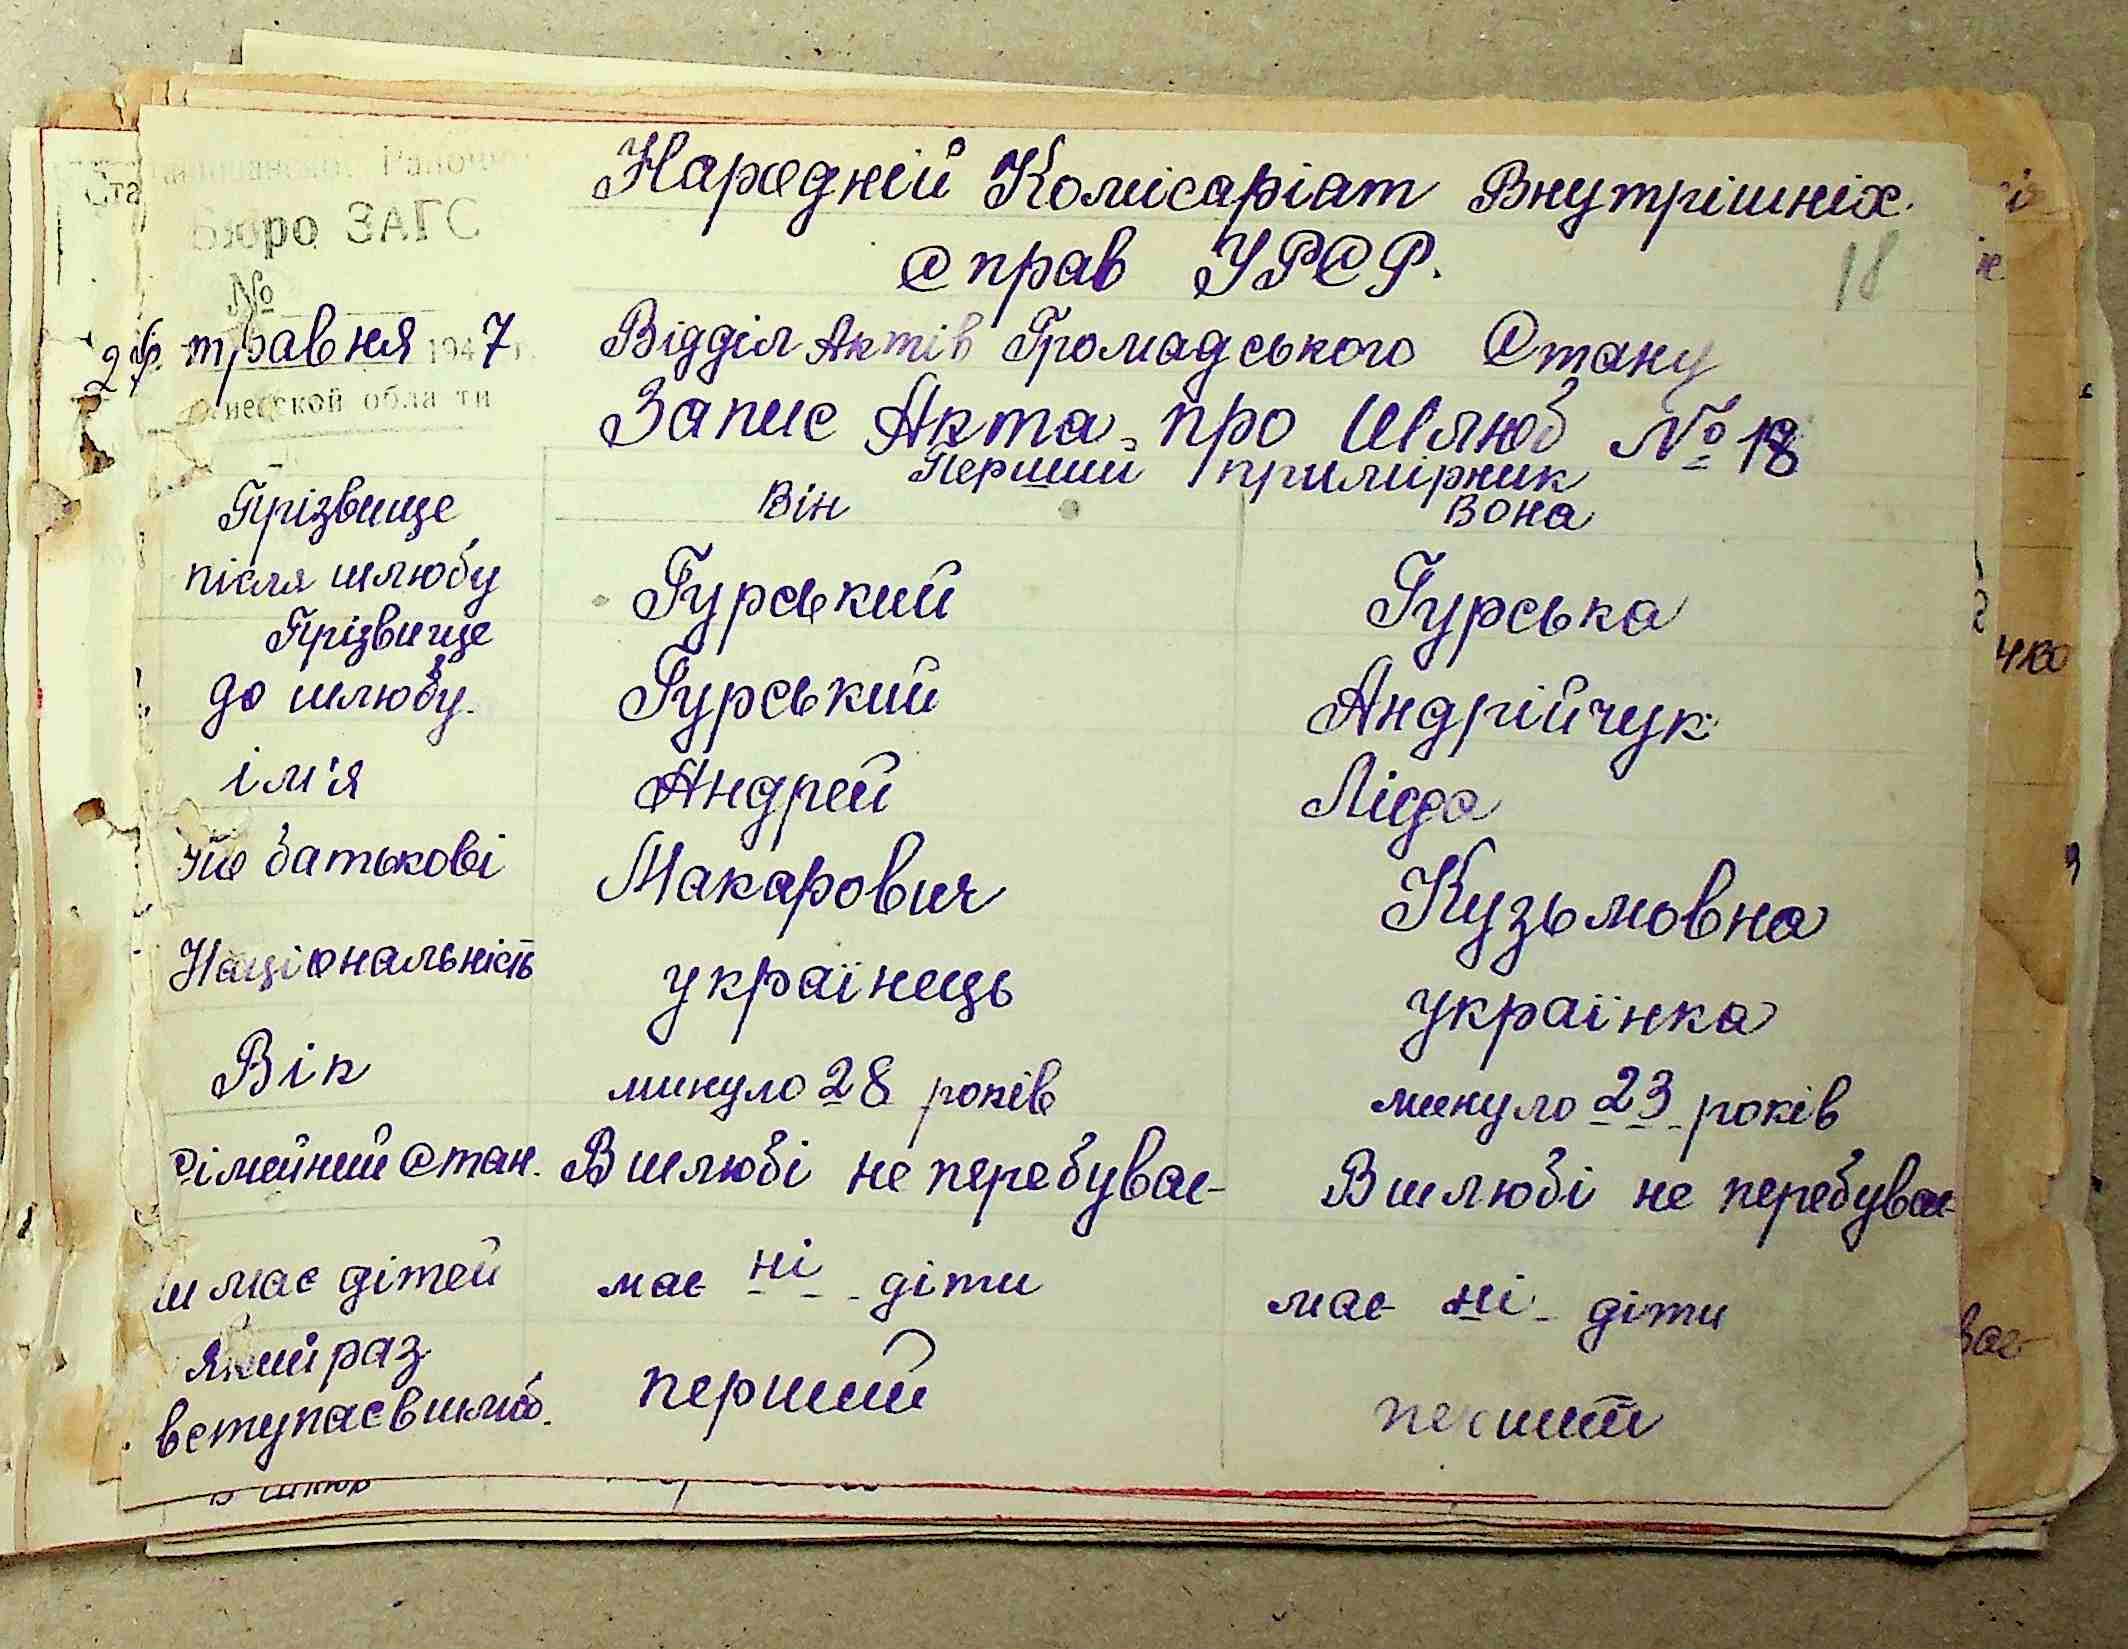 Бюро ЗАГС
№
травня 1947 г.
области
Народній Комісаріат Внутрішніх
Справ УРСР.
18
Відділ Актів Громадського Стану
Запис Акта про Шлюб № 18
Перший примірник
Він Вона
Прізвище
після шлюбу Гурський Гурська
Прізвище
до шлюбу. Гурський Андрійчук
ім'я Андрей Ліда
По батькові Макарович Кузьмовна
Національність українець українка
Вік минуло 28 років минуло 23 років
Сімейний Стан. В шлюбі не перебуває В шлюбі не перебуває
має дітей має ні діти має ні діти
Який раз
вступає в шлюб. перший перший